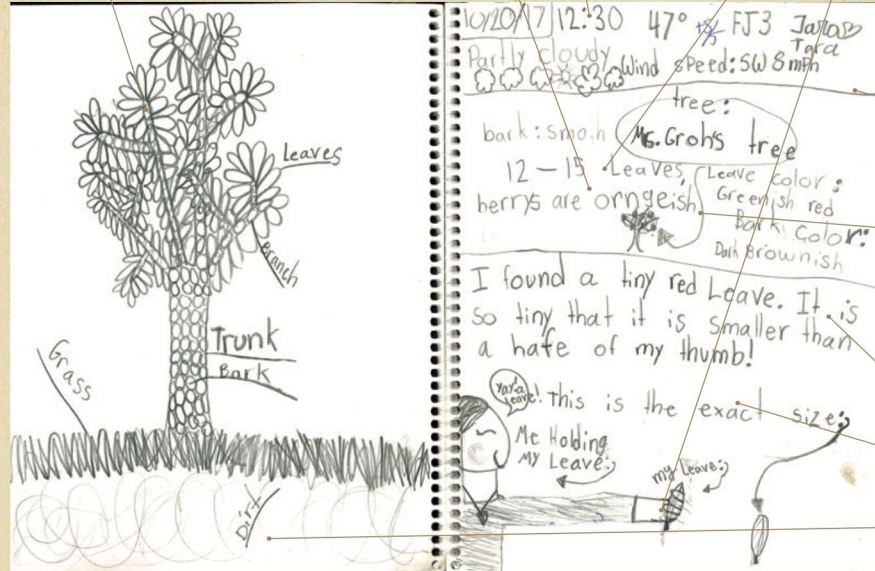 Leaves
Branch
Trunk
Bark
Grass
Dirt
10/20/17 12:30 47° FJ3
Tara
Partly cloudy
Wind speed: SW 8 mph
tree:
Ms. Groh's tree
bark: smoth
12 - 15 Leaves,
berrys are orngeish
Leave color:
Greenish red
Bark Color:
Dark Brownish
I found a tiny red Leave. It is
so tiny that it is smaller than
a hafe of my thumb!
Leave!
This is the exact size:
Me Holding
My Leave:
my Leave: